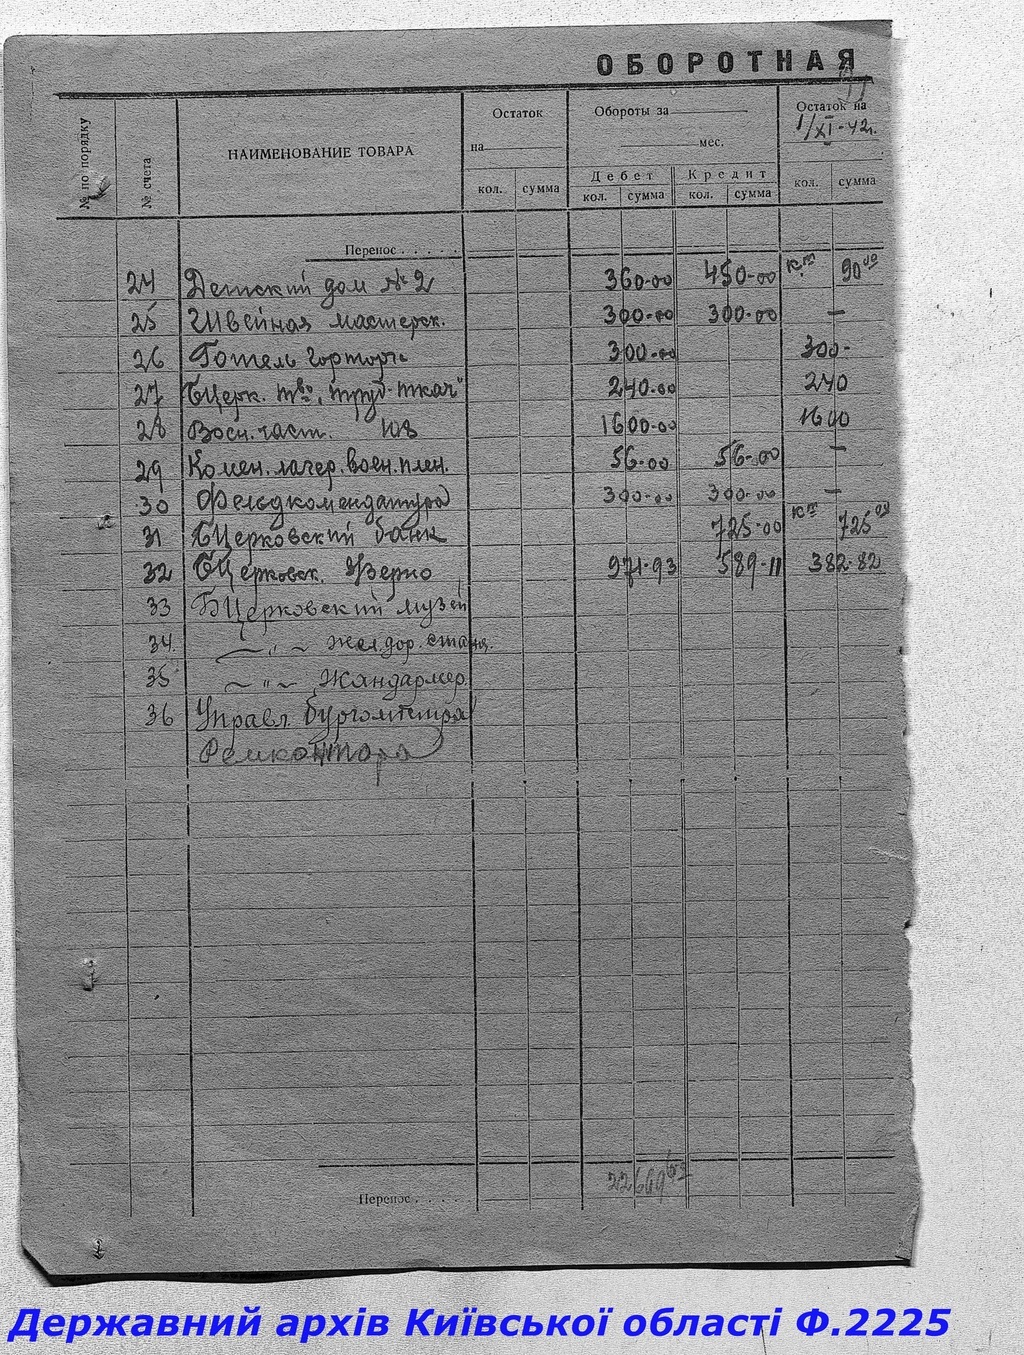 ОБОРОТНАЯ
№ по порядку
№ счета
НАИМЕНОВАНИЕ ТОВАРА
Остаток
на
Обороты за
мес.
Остаток на
1/XI-42г.
Дебет Кредит
кол. сумма кол. сумма кол. сумма кол. сумма
Перенос . . . . .
24 Детский дом № 2 360-00 450-00 Кт 90 00
25 Швейная мастерск. 300-00 300-00 —
26 Готель Горторг 300-00 300-
27 БЦерк. тво „труд-ткач" 240-00 240
28 Воен. част. 1600-00 1600
29 Комен. лагер. воен. плен. 56-00 56-00 —
30 Фельдкомендатура 300-00 300-00 —
31 БЦерковский банк 725-00 Кт 725
32 БЦерковск. 971-93 589-11 382-82
33 БЦерковский музей
34 — " — Жел.дор. станц.
35 — " — Жандармер.
36 Управл. бургомистра
Ремконтора
Перенос . . . . .
Державний архів Київської області Ф.2225